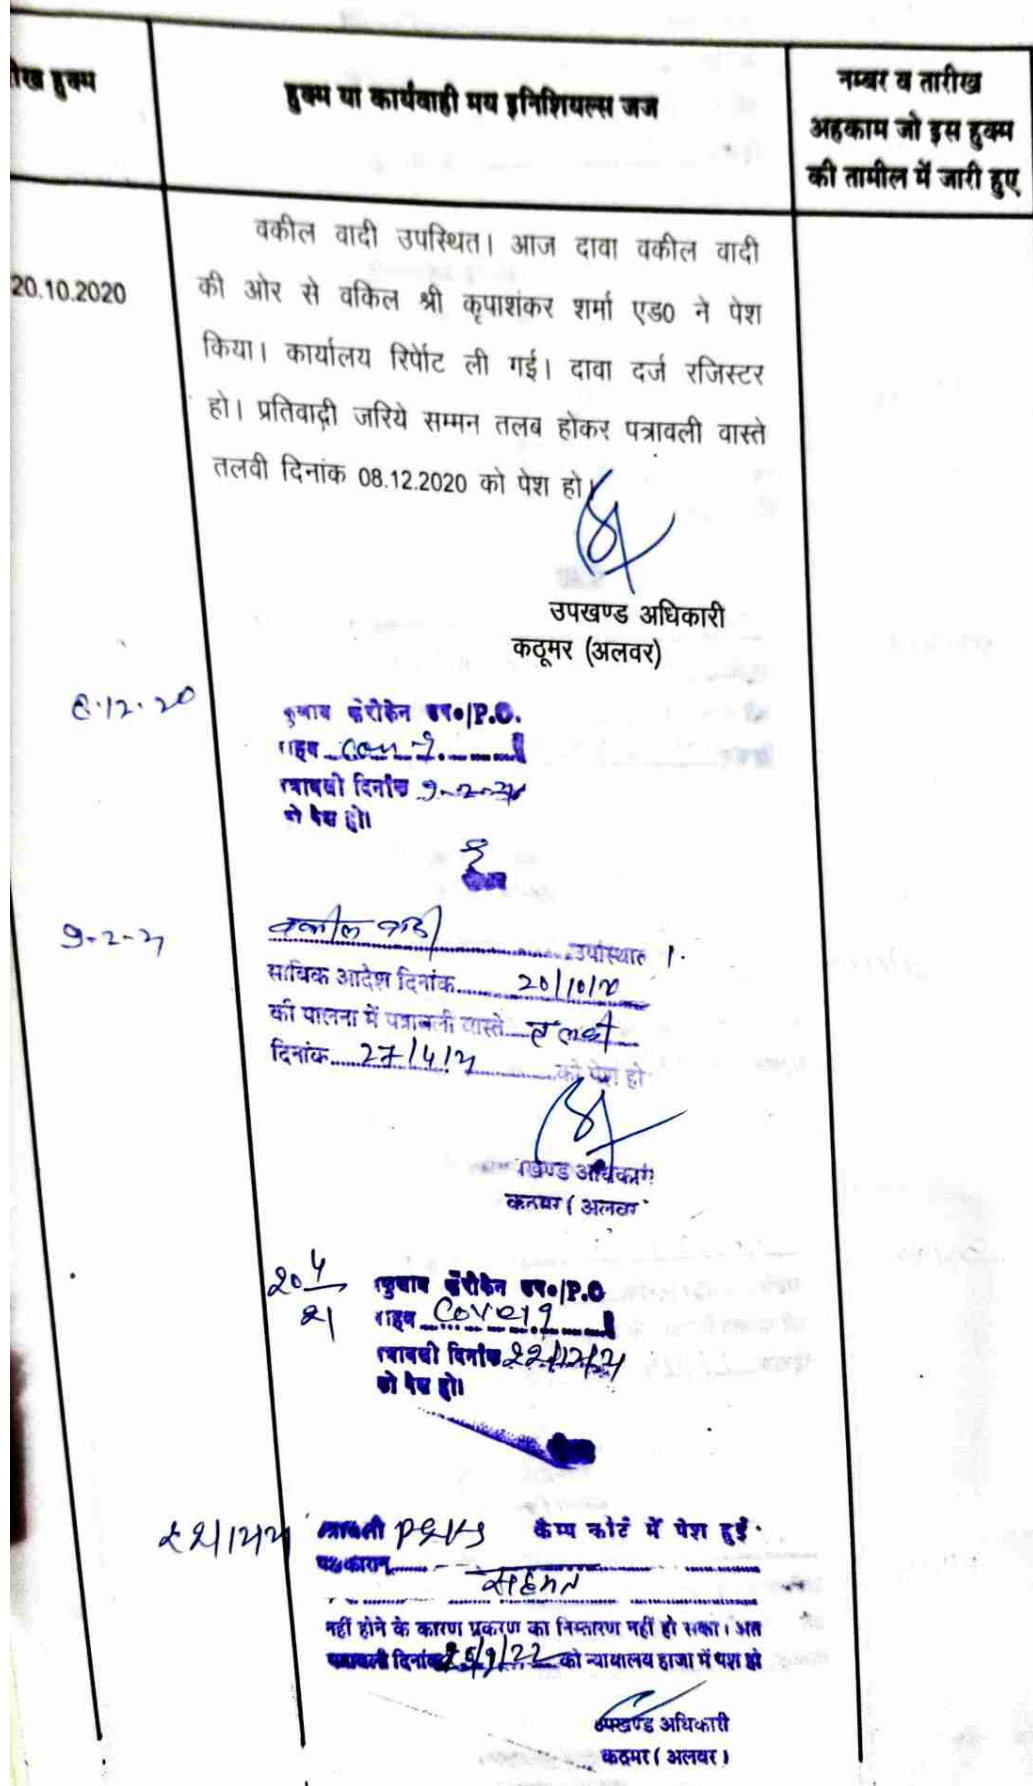 हुक्म
हुक्म या कार्यवाही मय इनिशियल्स जज
नम्बर व तारीख
अहकाम जो इस हुक्म
की तामील में जारी हुए
वकील वादी उपस्थित। आज दावा वकील वादी
20.10.2020
की ओर से वकिल श्री कृपाशंकर शर्मा एड0 ने पेश
किया। कार्यालय रिर्पोट ली गई। दावा दर्ज रजिस्टर
हो। प्रतिवादी जरिये सम्मन तलब होकर पत्रावली वास्ते
तलवी दिनांक 08.12.2020 को पेश हो।
उपखण्ड अधिकारी
कठूमर (अलवर)
8.12.20
P.O.
दिनांक 9-2-21
को पेश हो।
9-2-21
वकील वादी उपस्थित ।
साबिक आदेश दिनांक 20/10/20
की पालना में पत्रावली वास्ते तलवी
दिनांक 27/4/21 को पेश हो
खण्ड अधिकारी
कठूमर ( अलवर
P.O
दिनांक 22/12/21
को पेश हो।
22/12/21
कैम्प कोर्ट में पेश हुई
सहमत
नहीं होने के कारण प्रकरण का निस्तारण नहीं हो सका। अत
दिनांक को न्यायालय हाजा में पेश हो
उपखण्ड अधिकारी
कठूमर ( अलवर )